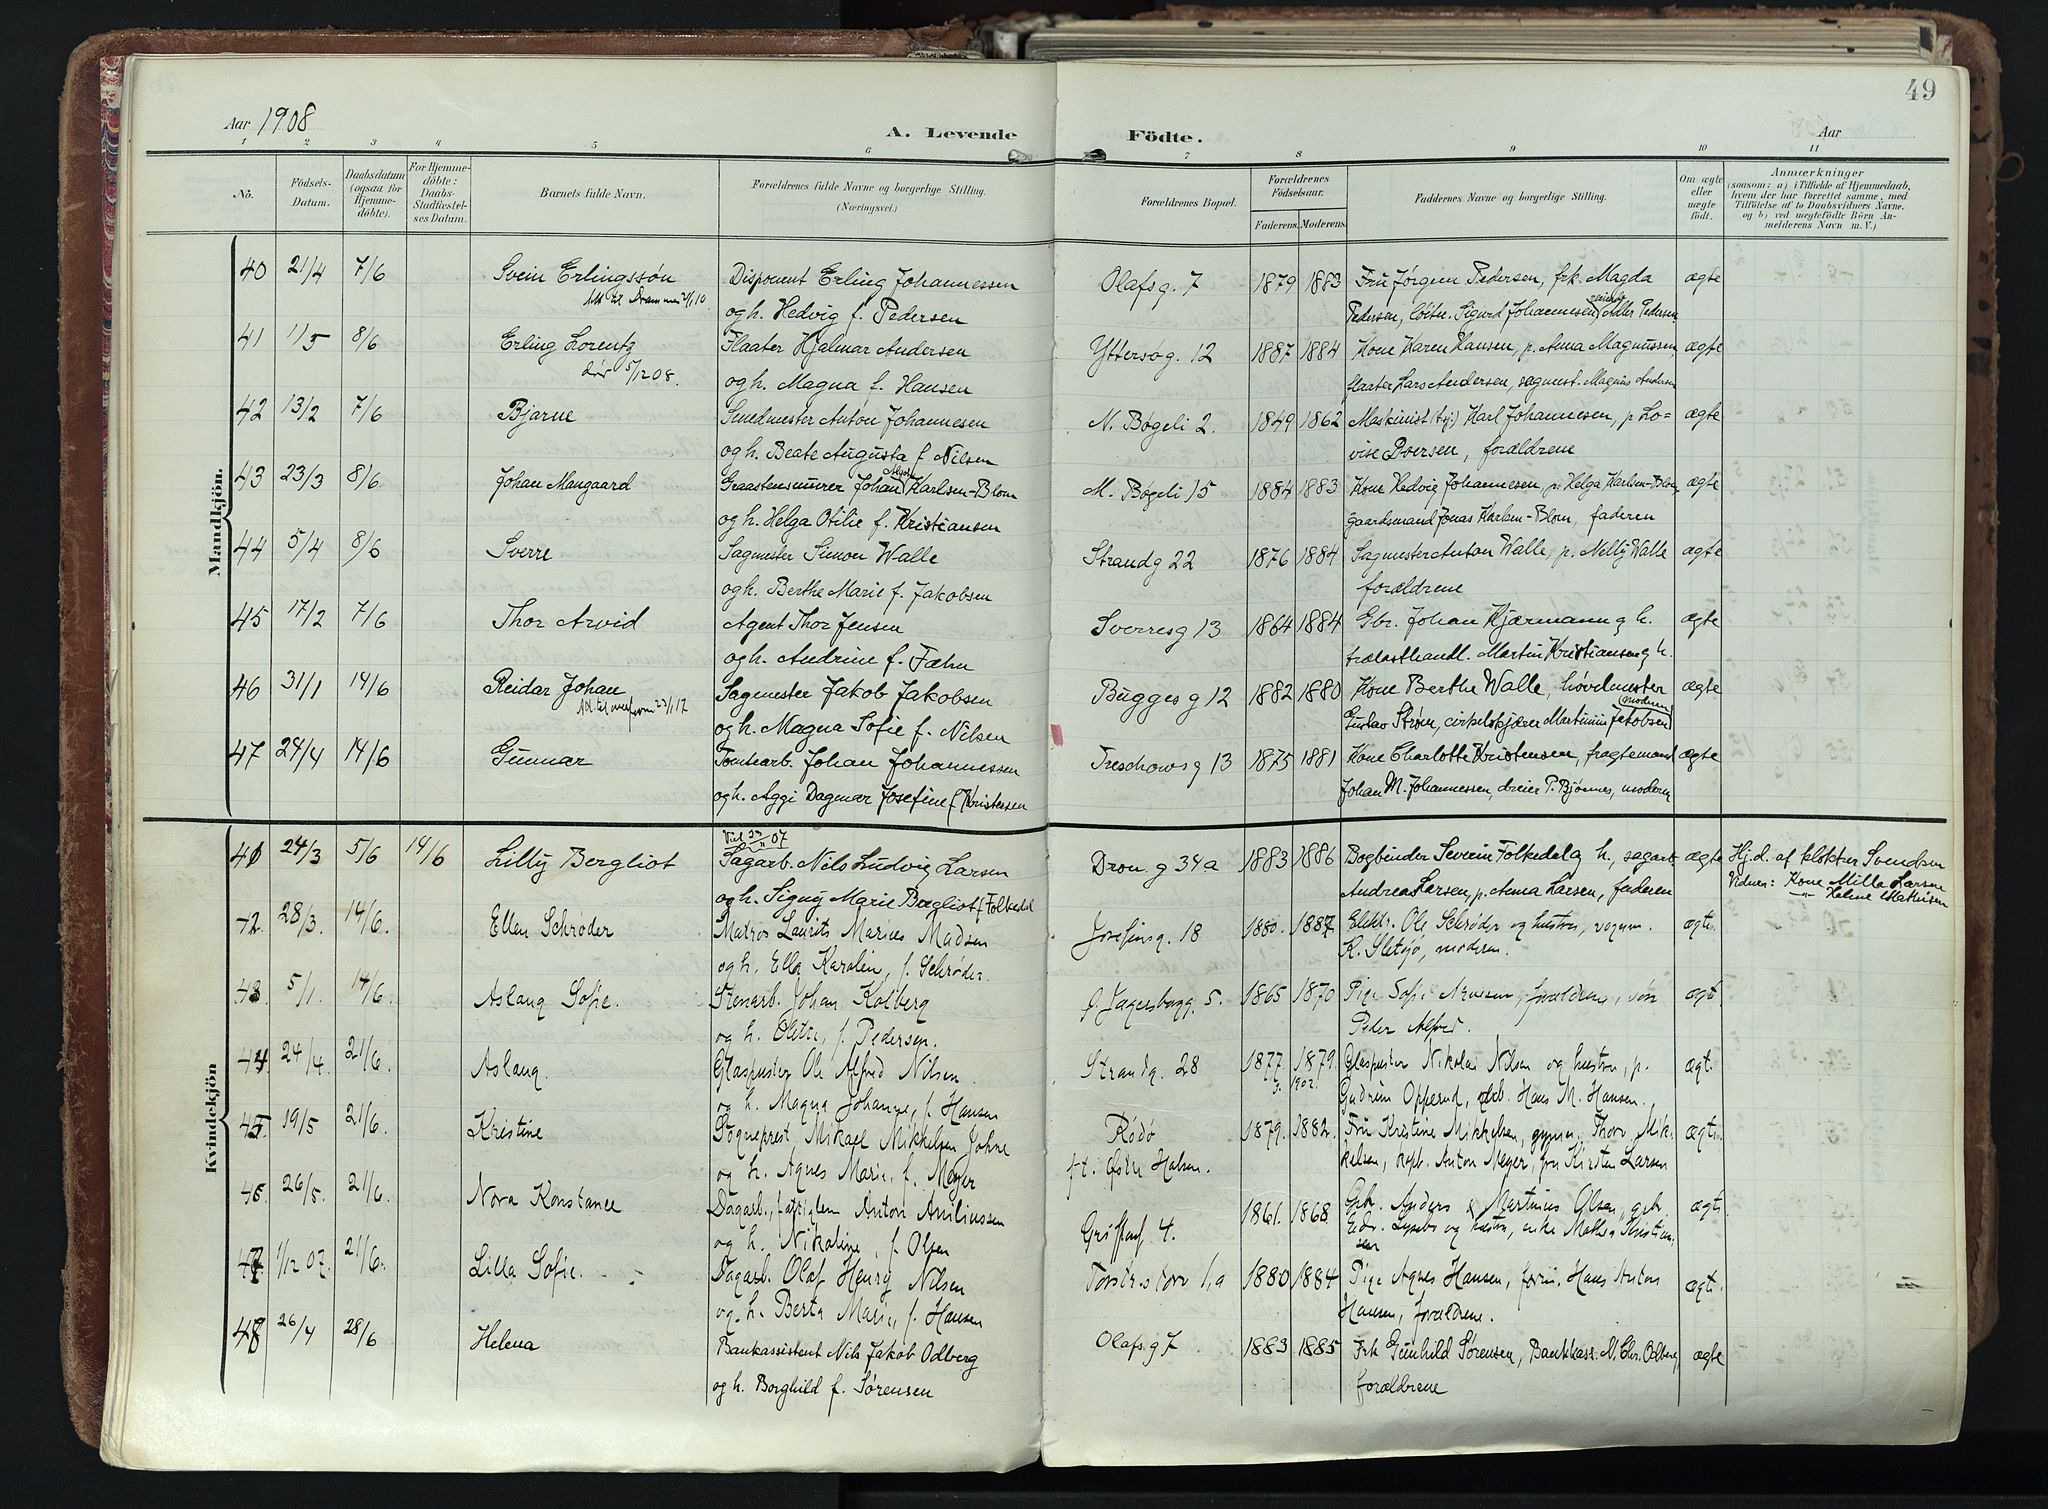 49
Aar 1908
A. Levende
Födte.
Aar
1 2 3 4 5 6 7 8 9 10 11
No.
Födsels-Datum.
Daabsdatum (ogsaa for Hjemmedöbte).
For Hjemmedöbte: Daabs-Stadfæstelses Datum.
Barnets fulde Navn.
Forældrenes fulde Navne og borgerlige Stilling. (Næringsvei.)
Forældrenes Bopæl.
Forældrenes Födselsaar.
Faderens. Moderens.
Faddernes Navne og borgerlige Stilling.
Om ægte eller uægte födt.
Anmærkninger
(saasom: a) i Tilfælde af Hjemmedaab, hvem der har forrettet samme, med Tilföielse af to Daabsvidners Navne, og b) ved uægtefödte Börn Anmelderens Navn m. V.)
Mandkjön.
40 21/4 7/6 Svein Erlingssøn Disponent Erling Johannessen Olafsg. 7 1879 1883 Fru Jørgen Pedersen, frk. Magda ægte
og h. Hedvig f. Pedersen Pedersen, Sigurd Johannesen, Adler Pedersen
41 1/5 8/6 Erling Lorentz Flaater Hjalmar Andersen Yttersøg. 12 1887 1884 Kone Karen Hansen, p. Anna Magnussen, ægte
dør 5/12 08. og h. Magna f. Hansen flaater Lars Andersen, sagmest. Magnus Andersen
42 13/2 7/6 Bjarne Smedmester Anton Johannesen N. Bøgeli 2. 1849 1862 Maskinist Karl Johannesen, p. Lo- ægte
og h. Beate Augusta f. Nilsen vise Iversen, forældrene
43 23/3 8/6 Johan Mangaard Graastensmurer Johan Karlsen-Blom M. Bøgeli 15 1884 1883 Kone Hedvig Johannesen, p. Helga Karlsen-Blom, ægte
og h. Helga Otilie f. Kristiansen gaardsmand Jonas Karlsen-Blom, faderen
44 5/4 8/6 Sverre Sagmester Simon Walle Strandg 22 1876 1884 Sagmester Anton Walle, p. Nelly Walle ægte
og h. Berthe Marie f. Jakobsen forældrene
45 17/2 7/6 Thor Arvid Agent Thor Jensen Sverresg 13 1864 1884 Gbr. Johan Kjærmann og h. ægte
og h. Andrine f. Fæhn trælasthandl. Martin Kristiansen og h.
46 31/1 14/6 Reidar Johan Sagmester Jakob Jakobsen Bugges g 12 1882 1880 Kone Berthe Walle, høvdmester ægte
og h. Magna Sofie f. Nilsen Gustav Strøm, cirkelskjærer Martinius Jakobsen moderen
47 24/4 14/6 Gunnar Tomtearb. Johan Johannessen Treschows g 13 1875 1881 Kone Charlotte Kristensen, fragtemand ægte
og h. Aggi Dagmar Josefine f. Kristensen Johan M. Johannessen, dreier P. Bjønnes, moderen
Kvindekjön
41 24/3 5/6 14/6 Lilly Bergliot Sagarb. Nils Ludvig Larsen Dron g 34a 1883 1886 Bogbinder Severin Folkedal og h., sagarb. ægte Hj.d. af klokker Svendsen
og h. Signy Marie Bergliot f. Folkedal Andreas Larsen, p. Anna Larsen, faderen Vidner: Kone Milla Larsen
42 28/3. 14/6. Ellen Schrøder Matros Laurits Marius Madsen Josefinesg. 18 1880. 1887 Elektr. Ole Schrøder og hustru, ægte
og h. Ella Karolin, f. Schrøder. moderen.
43 5/1. 14/6. Aslaug Sofie. Stenarb. Johan Kolberg 5. 1865 1870 Pige Sofie forældrene, ægt
og h. f. Pedersen. Peder Alfred.
44 24/4. 21/6. Aslaug. Glaspuster Ole Alfred Nilsen. Strandg. 28 1877 1879. Glaspuster Nikolai Nilsen og hustru, p. ægt.
og h. Magna Johanne, f. Hansen 1902. Gudrun Opperud, Hans M. Hansen.
45 19/5 21/6. Kristine Sogneprest Mikael Mikkelsen Johne Rödö 1879. 1882. Fru Kristine Mikkelsen, Mik-
og h. Agnes Marie f. Meyer kelsen, Anton Meyer, Kirsten Larsen
46 26/5. 21/6. Nora Konstance Dagarb. Anton 4. 1861. 1868. Gbr. Anders Martinius Olsen, gbr.
og h. Nikoline, f. Olsen
47 1/12 07. 21/6. Lilla Sofie. Dagarb. Olaf Henry Nilsen 1,a 1880 1884 Pige Agnes Hansen, Hans Anton ægt.
og h. Berta Marie, f. Hansen Hansen, forældrene.
48 26/4 28/6 Helena Bankassistent Nils Jakob Odberg Olafs.g 7 1883 1885 Frk Gunhild Sørensen, Bankkass. N. Chr. Odberg, ægte
og h. Borghild f. Sørensen forældrene